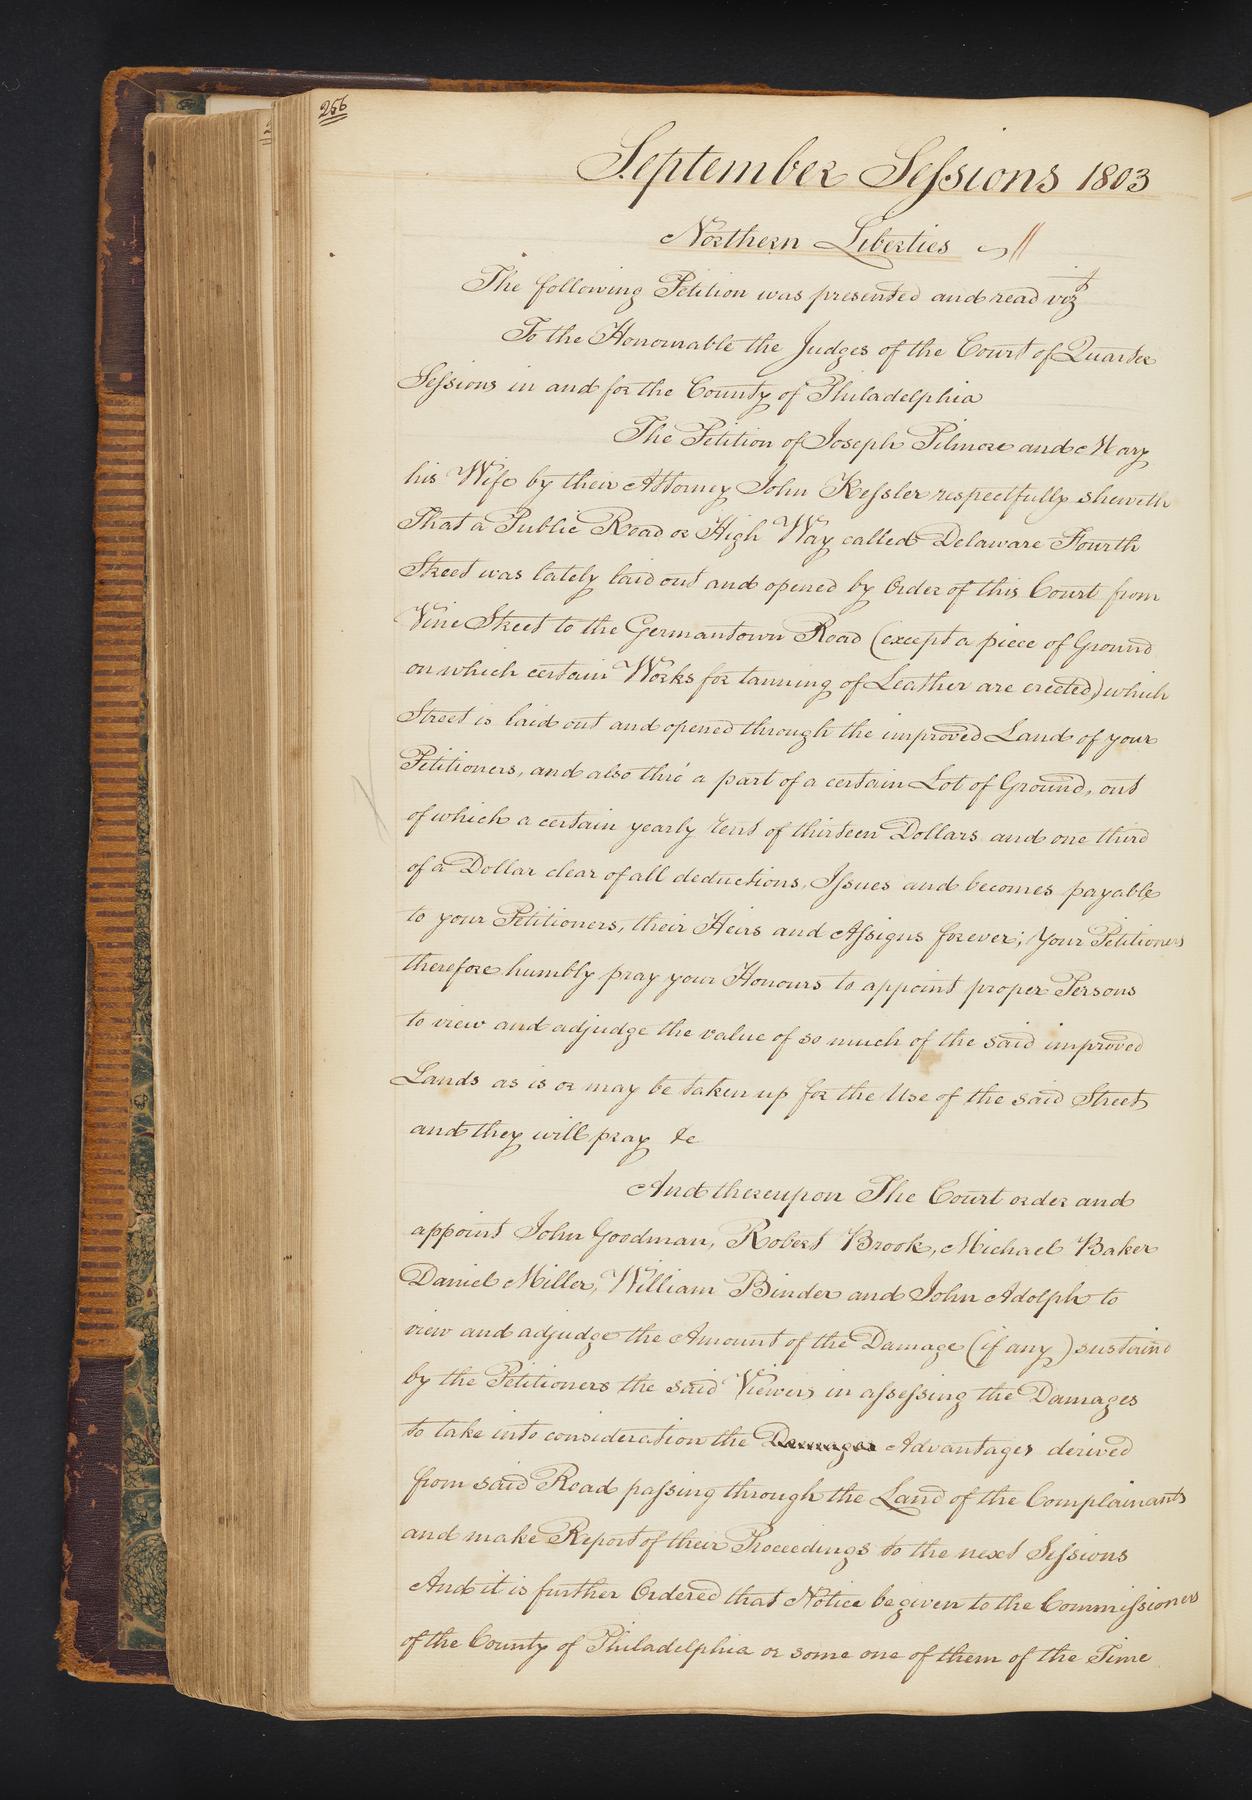 256
September Sessions 1803
Northern Liberties
The following Petition was presented and read vizt
To the Honourable the Judges of the Court of Quarter
Sessions in and for the County of Philadelphia
The Petition of Joseph Pilmore and Mary
his Wife by their Attorney John Kessler respectfully sheweth
That a Public Road or High Way called Delaware Fourth
Street was lately laid out and opened by Order of this Court from
Vine Street to the Germantown Road (except a piece of Ground
on which certain Works for tanning of Leather are erected) which
Street is laid out and opened through the improved Land of your
Petitioners, and also thro' a part of a certain Lot of Ground, out
of which a certain yearly rent of thirteen Dollars and one third
of a Dollar clear of all deductions, Issues and becomes payable
to your Petitioners, their Heirs and Assigns forever; Your Petitioners
therefore humbly pray your Honours to appoint proper Persons
to view and adjudge the value of so much of the said improved
Lands as is or may be taken up for the Use of the said Street
and they will pray &c
And thereupon The Court order and
appoint John Goodman, Robert Brook, Michael Baker
Daniel Miller, William Binder and John Adolph to
view and adjudge the Amount of the Damage (if any) sustaind
by the Petitioners the said Viewers in assessing the Damages
to take into consideration the Damages Advantages derived
from said Road passing through the Land of the Complainants
and make Report of their Proceedings to the next Sessions
And it is further Ordered that Notice be given to the Commissioners
of the County of Philadelphia or some one of them of the Time